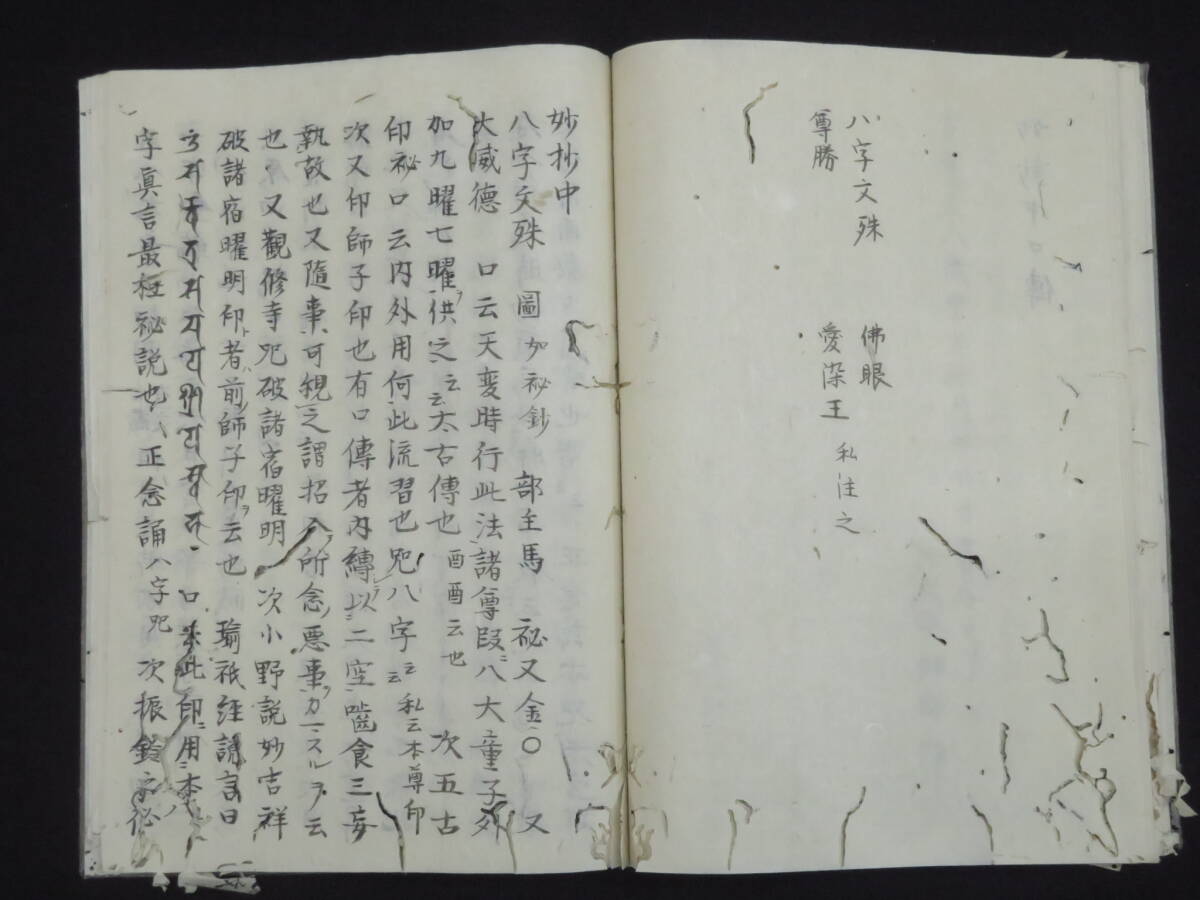 八字文殊　佛眼
尊勝　愛染王　私注之
妙抄中
八字文殊　圖如祕鈔　部主馬　祕又金〇　又
大威德　口云天変時行此法諸尊段ニ八大童子外
加九曜七曜供之云云太古傳也　酉酉云也　次五古
印祕口云内外用何此流習也呪八字云云私云本尊印
次又印師子印也有口傳者内縛以二空嚙食三妄
執故也又隨事可観之謂招入所念悪事ヲカ一スルヲ云
也又觀修寺呪破諸宿曜明　次小野説妙吉祥
破諸宿曜明印者前師子印ヲ云也　瑜祇経説言曰
口 此印ニ用本
字真言最極祕説也　正念誦八字呪　次振鈴 祕